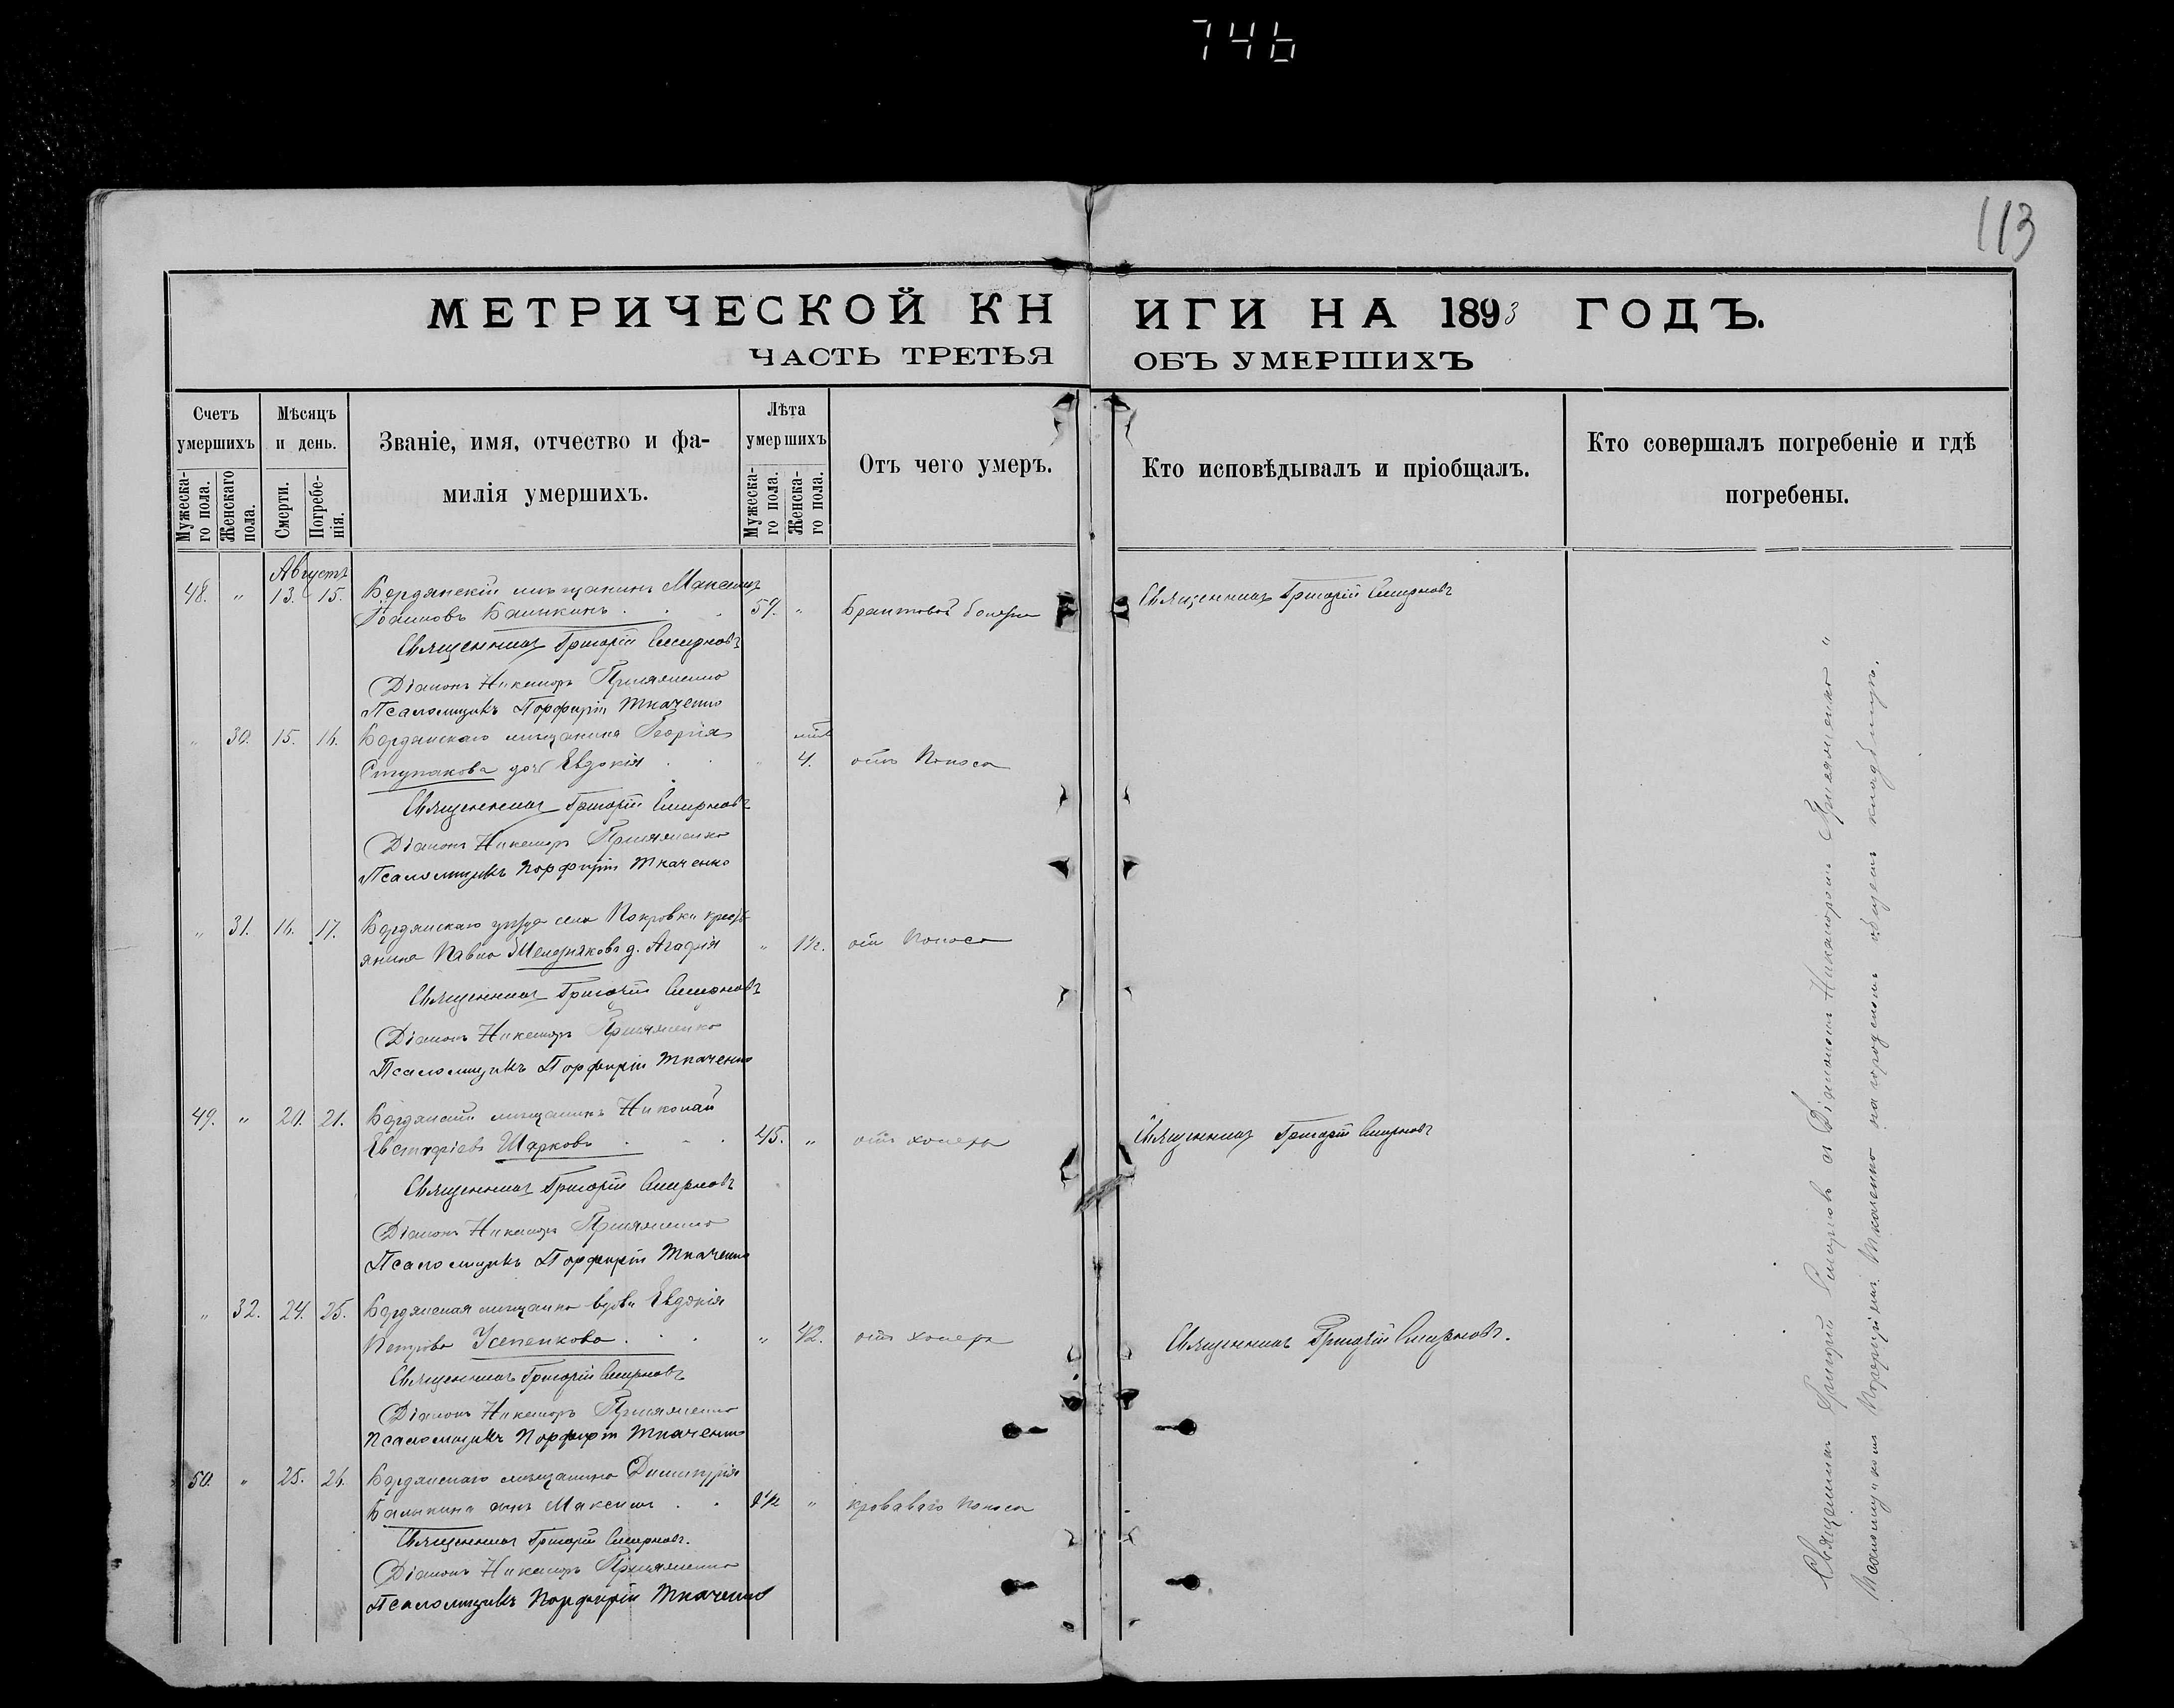 746
113
МЕТРИЧЕСКОЙ КНИГИ НА 1893 ГОДЪ.
ЧАСТЬ ТРЕТЬЯ ОБЪ УМЕРШИХЪ
Счетъ умершихъ
Мужескаго пола.
Женскаго пола.
Мѣсяцъ и день.
Смерти.
Погребенія.
Званіе, имя, отчество и фамилія умершихъ.
Лѣта умершихъ
Мужескаго пола.
Женскаго пола.
Отъ чего умеръ.
Кто исповѣдывалъ и пріобщалъ.
Кто совершалъ погребеніе и гдѣ погребены.
Августъ
48. " 13. 15. Бердянскій мѣщанинъ Максимъ
59. " болѣзни
Священникъ Григорій Смирновъ
Священникъ Григорій Смирновъ
Діаконъ Никаноръ
Псаломщикъ Порфирій Ткаченко
" 30. 15. 16. Бердянскаго мѣщанина Георгія
Ступакова дочь Евдокія 4. отъ поноса
Священникъ Григорій Смирновъ
Діаконъ Никаноръ
Псаломщикъ Порфирій Ткаченко
" 31. 16. 17. Бердянскаго уѣзда села Покровки кресть
янина Павла д. Агафія " отъ поноса
Священникъ Григорій Смирновъ
Діаконъ Никаноръ
Псаломщикъ Порфирій Ткаченко
49. " 20. 21. Бердянскій мѣщанинъ Николай
Евстафіевъ Шарковъ 45. " отъ холеры
Священникъ Григорій Смирновъ
Священникъ Григорій Смирновъ
Діаконъ Никаноръ
Псаломщикъ Порфирій Ткаченко
" 32. 24. 25. Бердянская мѣщанка вдова Евдокія
Петрова Усепенкова " 42. отъ холеры
Священникъ Григорій Смирновъ.
Священникъ Григорій Смирновъ
Діаконъ Никаноръ
Псаломщикъ Порфирій Ткаченко
50. " 25. 26. Бердянскаго мѣщанина Димитрія
сынъ Максимъ " кроваваго поноса
Священникъ Григорій Смирновъ.
Діаконъ Никаноръ
Псаломщикъ Порфирій Ткаченко
Священникъ Григорій Смирновъ съ Діакономъ Никаноромъ "
Псаломщикомъ Порфиріемъ Ткаченко на городскомъ общемъ кладбищѣ.